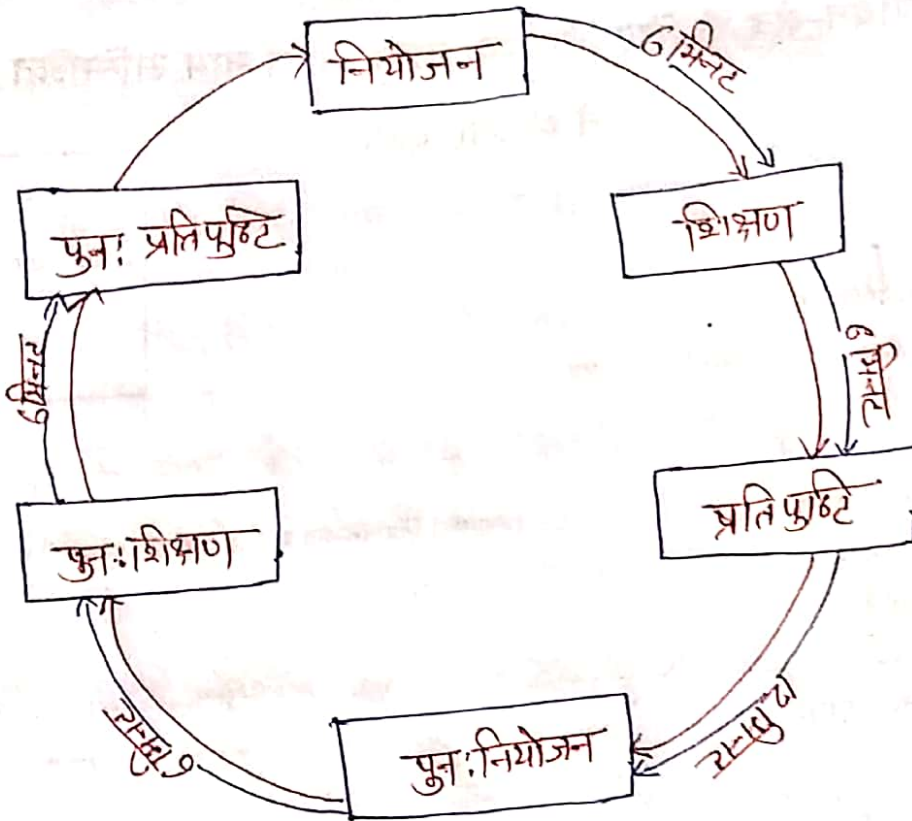 नियोजन
6 मिनट
शिक्षण
6 मिनट
प्रति पुष्टि
मिनट
पुनः नियोजन
मिनट
पुनः शिक्षण
6 मिनट
पुनः प्रतिपुष्टि